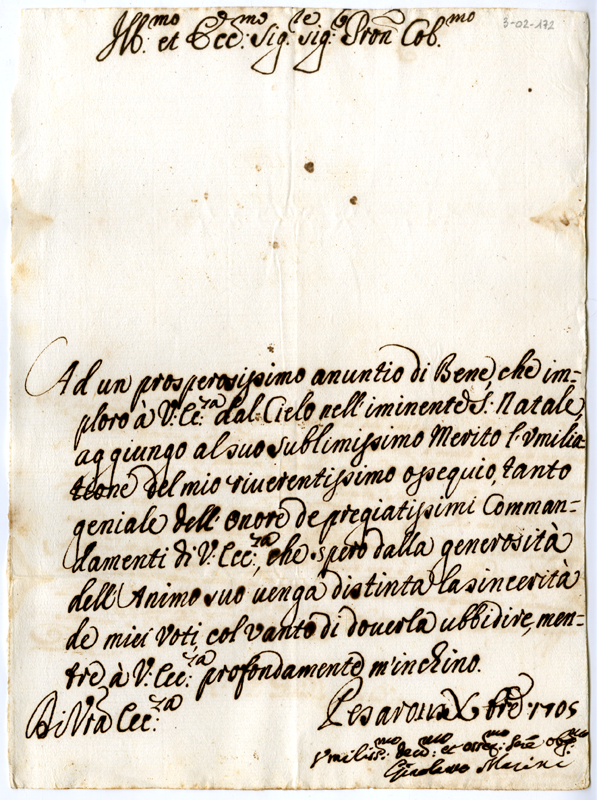 3-02-172
Ill.mo et Ecc.mo Sig.re sig.r Pron Col.mo
Ad un prosperosissimo anuntio di Bene, che im=
ploro à V: Ec:za dal Cielo nell'iminente S: Natale,
aggiungo al suo sublimissimo Merito l'vmilia=
tione del mio riuerentissimo ossequio, tanto
geniale dell'onore de pregiatissimi Comman=
damenti di V: Ecc:za, che spero dalla generosità
dell'Animo suo uenga distinta la sincerità
de miei Voti col vanto di douerla ubbidire, men=
tre à V: Ecc:za profondamente m'inchino.
Di Vrã Ecc:za
Pesaro Xbre 1705
Vmiliss:mo deuo:mo et osseq:mo
Girolamo Marini